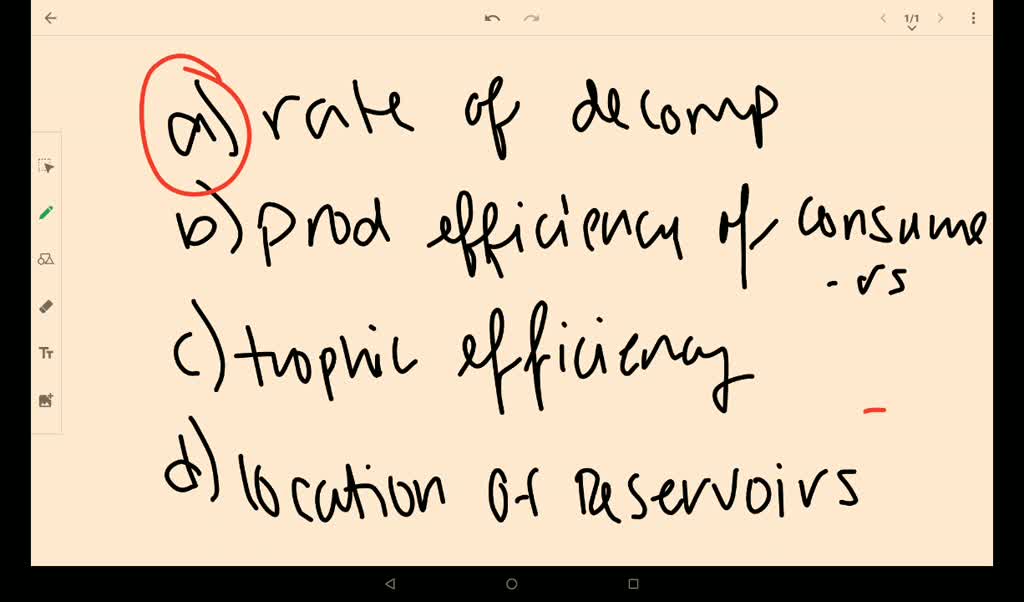 1/1
a) rate of decomp
b) prod efficiency of consume
- rs
c) trophic efficiency
d) location of reservoirs
Tт